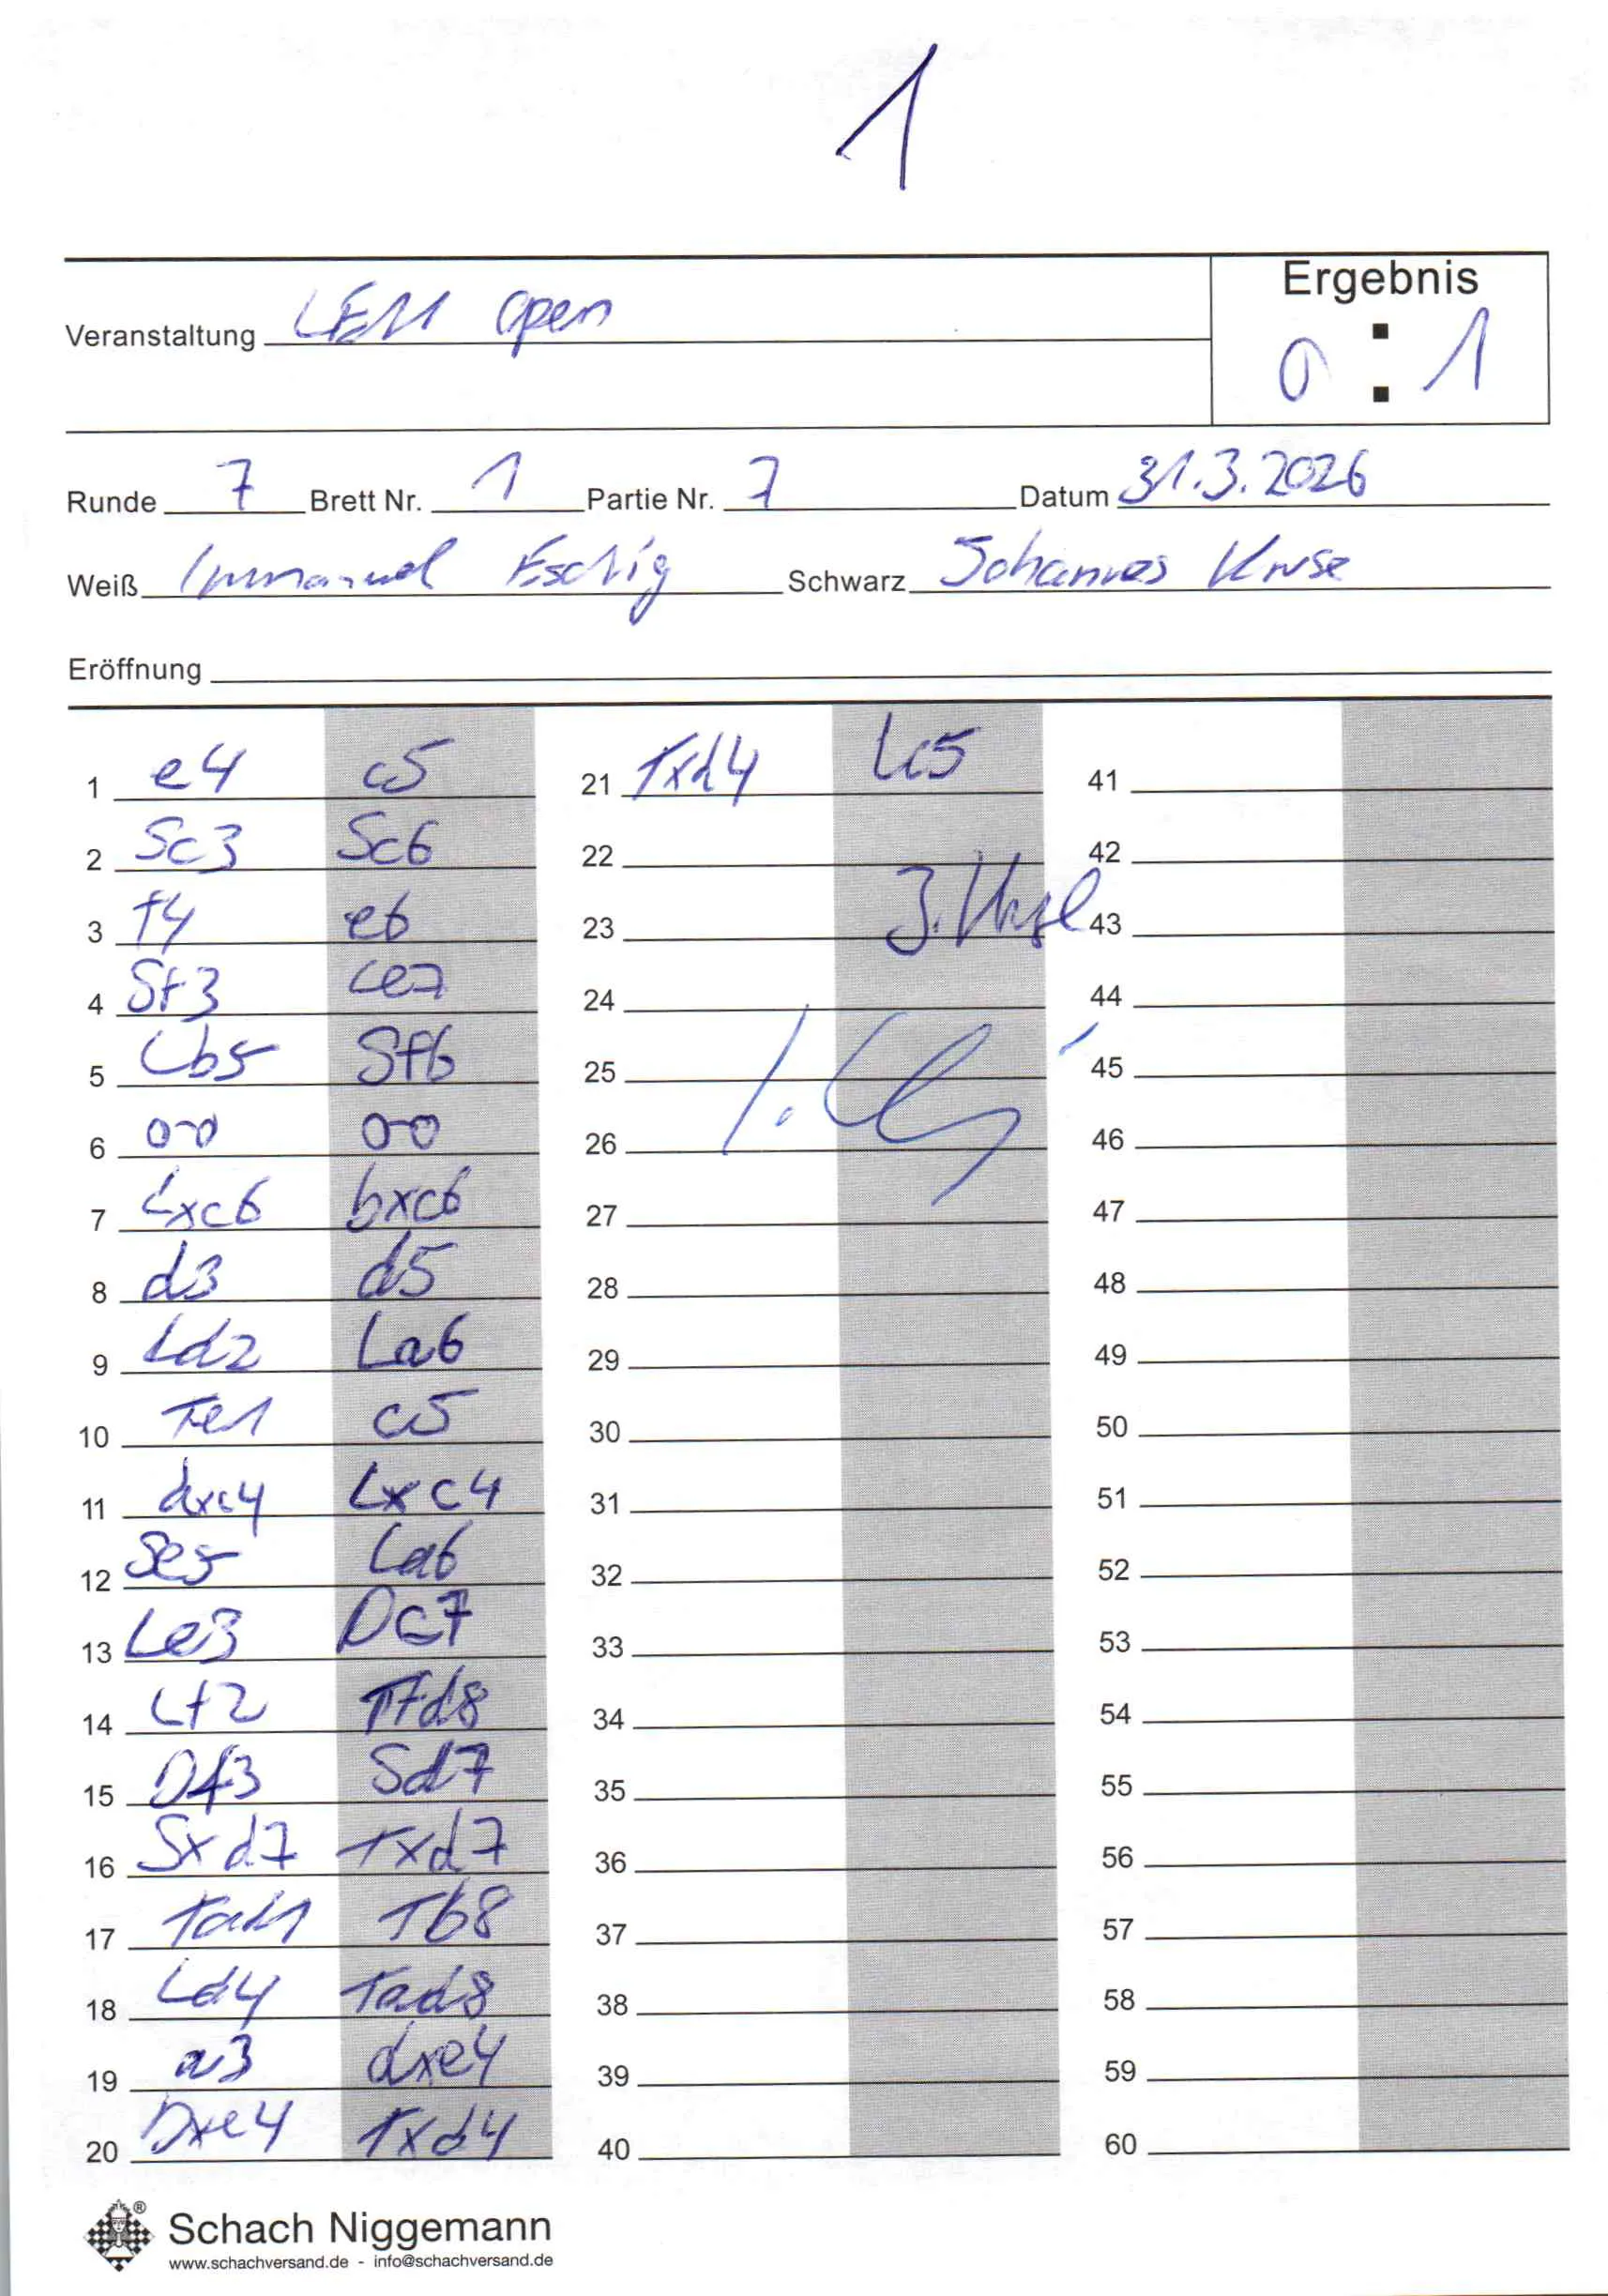 1
Ergebnis
Veranstaltung LEM Open
0 : 1
Runde 7 Brett Nr. 1 Partie Nr. 7 Datum 31.3.2026
Weiß Immanuel Schwarz Johannes Kruse
Eröffnung
1 e4 c5
2 Sc3 Sc6
3 f4 e6
4 Sf3 Le7
5 Lb5 Sf6
6 0-0 0-0
7 Lxc6 bxc6
8 d3 d5
9 Ld2 La6
10 Te1 c5
11 dxc4 Lxc4
12 Se5 La6
13 Le3 Dc7
14 Lf2 Tfd8
15 Df3 Sd7
16 Sxd7 Txd7
17 Tad1 Tb8
18 Ld4 Tad8
19 a3 dxe4
20 Dxe4 Txd4
21 Txd4 Lc5
22
23 J. Kruse
24
25
26
27
28
29
30
31
32
33
34
35
36
37
38
39
40
41
42
43
44
45
46
47
48
49
50
51
52
53
54
55
56
57
58
59
60
Schach Niggemann
www.schachversand.de - info@schachversand.de